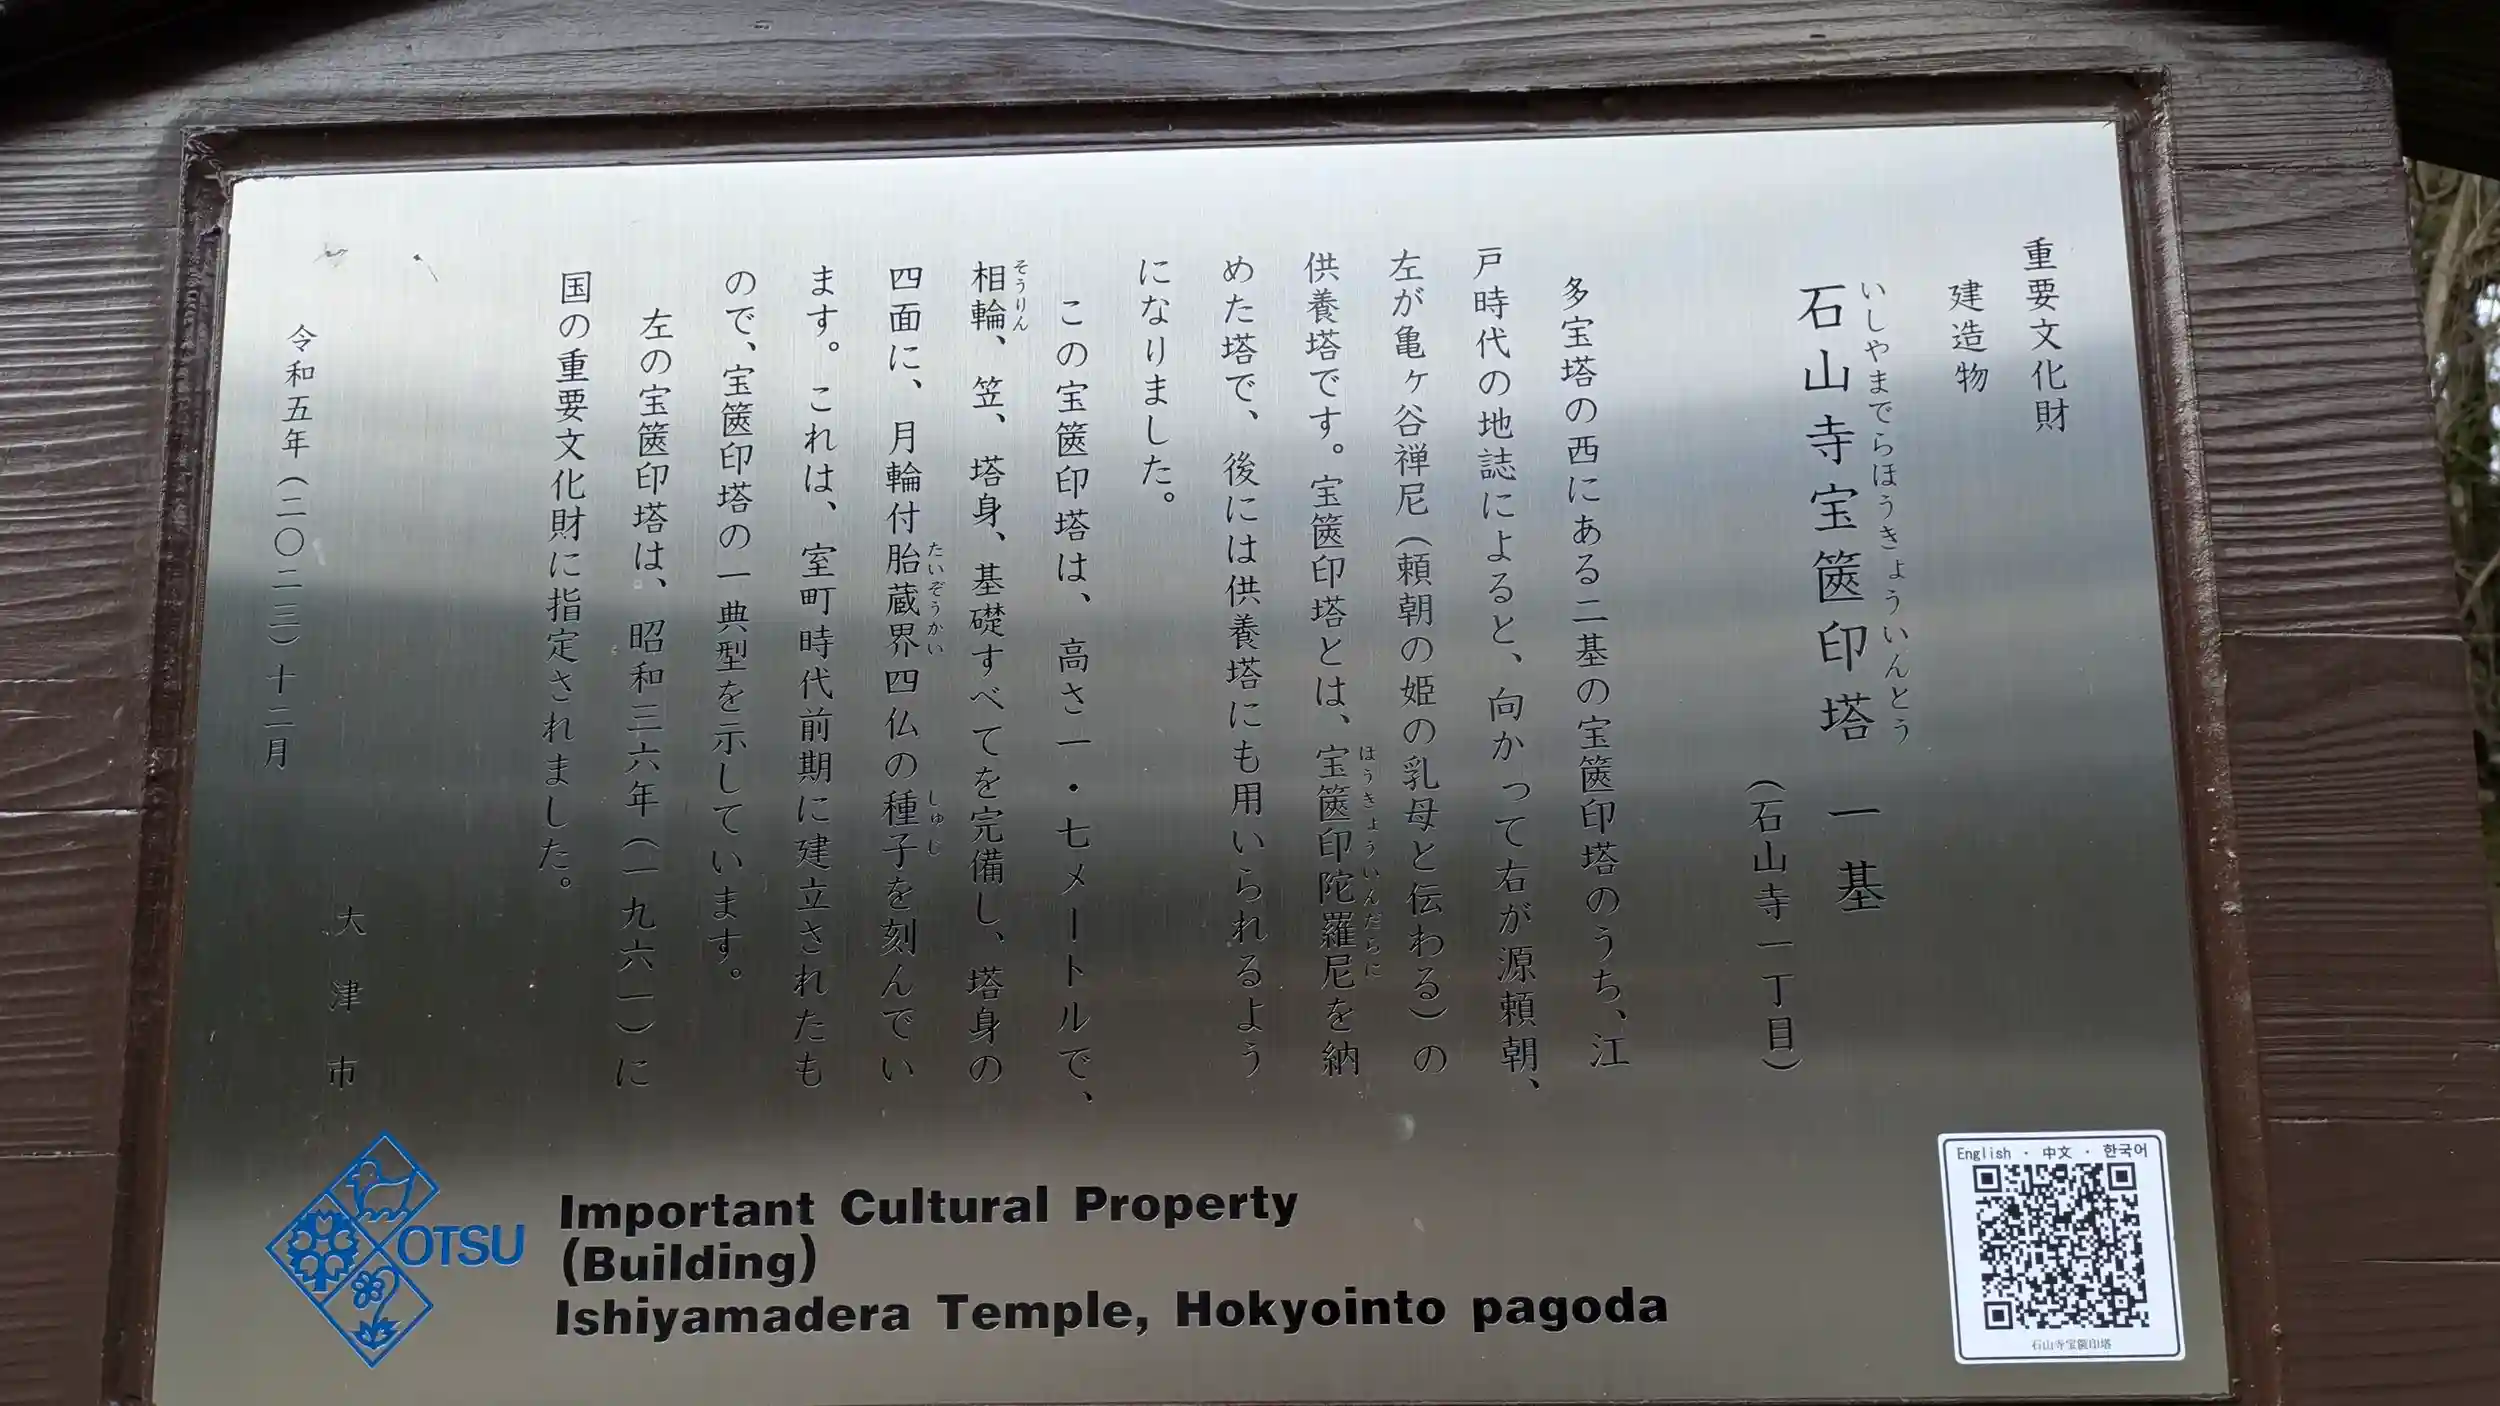 重要文化財
建造物
いしやまでらほうきょういんとう
石山寺宝篋印塔 一基
(石山寺一丁目)
多宝塔の西にある二基の宝篋印塔のうち、江
戸時代の地誌によると、向かって右が源頼朝、
左が亀ヶ谷禅尼(頼朝の姫の乳母と伝わる)の
供養塔です。宝篋印塔とは、宝篋印陀羅尼を納
ほうきょういんだらに
めた塔で、後には供養塔にも用いられるよう
になりました。
この宝篋印塔は、高さ一・七メートルで、
相輪、笠、塔身、基礎すべてを完備し、塔身の
そうりん
四面に、月輪付胎蔵界四仏の種子を刻んでい
たいぞうかい しゅじ
ます。これは、室町時代前期に建立されたも
ので、宝篋印塔の一典型を示しています。
左の宝篋印塔は、昭和三六年(一九六一)に
国の重要文化財に指定されました。
大津市
令和五年(二〇二三)十二月
OTSU
Important Cultural Property
(Building)
Ishiyamadera Temple, Hokyointo pagoda
English · 中文 · 한국어
石山寺宝篋印塔